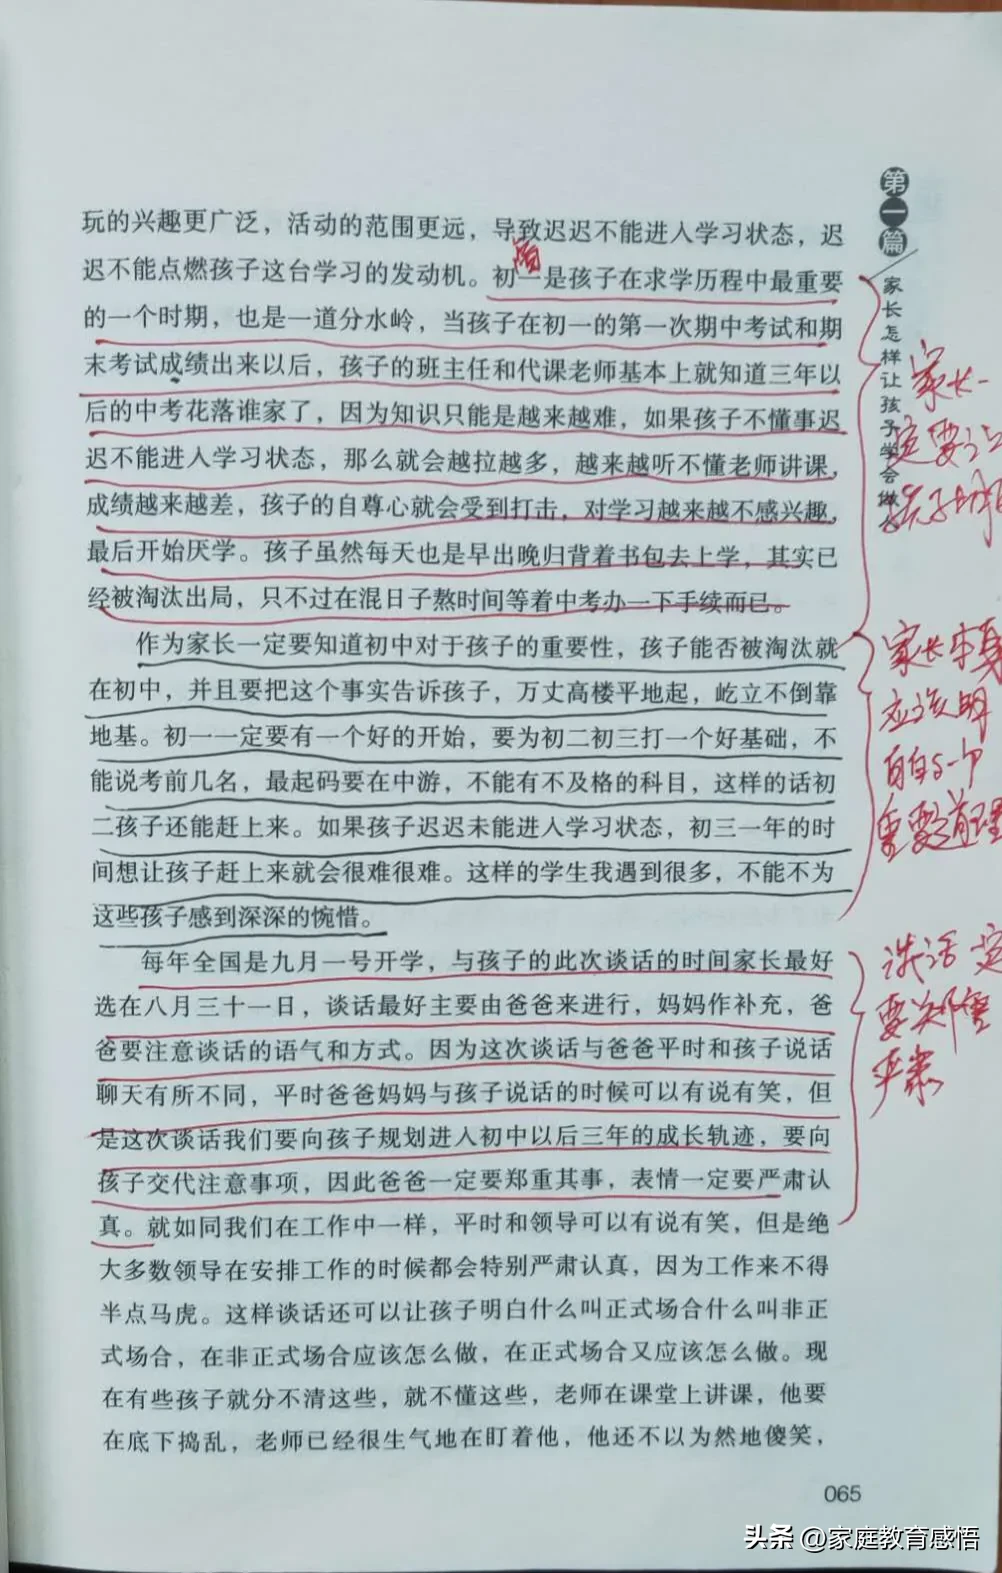 玩的兴趣更广泛，活动的范围更远，导致迟迟不能进入学习状态，迟
迟不能点燃孩子这台学习的发动机。初一是孩子在求学历程中最重要
的一个时期，也是一道分水岭，当孩子在初一的第一次期中考试和期
末考试成绩出来以后，孩子的班主任和代课老师基本上就知道三年以
后的中考花落谁家了，因为知识只能是越来越难，如果孩子不懂事迟
迟不能进入学习状态，那么就会越拉越多，越来越听不懂老师讲课，
成绩越来越差，孩子的自尊心就会受到打击，对学习越来越不感兴趣，
最后开始厌学。孩子虽然每天也是早出晚归背着书包去上学，其实已
经被淘汰出局，只不过在混日子熬时间等着中考办一下手续而已。
作为家长一定要知道初中对于孩子的重要性，孩子能否被淘汰就
在初中，并且要把这个事实告诉孩子，万丈高楼平地起，屹立不倒靠
地基。初一一定要有一个好的开始，要为初二初三打一个好基础，不
能说考前几名，最起码要在中游，不能有不及格的科目，这样的话初
二孩子还能赶上来。如果孩子迟迟未能进入学习状态，初三一年的时
间想让孩子赶上来就会很难很难。这样的学生我遇到很多，不能不为
这些孩子感到深深的惋惜。
每年全国是九月一号开学，与孩子的此次谈话的时间家长最好
选在八月三十一日，谈话最好主要由爸爸来进行，妈妈作补充，爸
爸要注意谈话的语气和方式。因为这次谈话与爸爸平时和孩子说话
聊天有所不同，平时爸爸妈妈与孩子说话的时候可以有说有笑，但
是这次谈话我们要向孩子规划进入初中以后三年的成长轨迹，要向
孩子交代注意事项，因此爸爸一定要郑重其事，表情一定要严肃认
真。就如同我们在工作中一样，平时和领导可以有说有笑，但是绝
大多数领导在安排工作的时候都会特别严肃认真，因为工作来不得
半点马虎。这样谈话还可以让孩子明白什么叫正式场合什么叫非正
式场合，在非正式场合应该怎么做，在正式场合又应该怎么做。现
在有些孩子就分不清这些，就不懂这些，老师在课堂上讲课，他要
在底下捣乱，老师已经很生气地在盯着他，他还不以为然地傻笑，
第一篇
家长怎样让孩子学会做人
家长一
定要让
孩子明
家长本身
应该明
白这一个
重要道理
谈话定
要郑重
严肃
065
头条 @家庭教育感悟